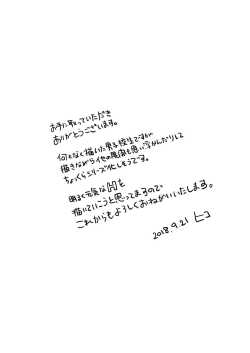 お手に取っていただき
ありがとうございます。
何となく描いた男子校生ですが
描きながら他の場面も思い浮かんだりして
ちょっくらシリーズ化しそうです。
明るく元気な
描いていこうと思ってますので
これからもよろしくおねがいいたします。
2018.9.21